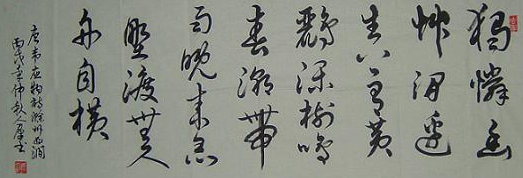 獨憐幽
草澗邊
生上有黄
鸝深樹鳴
春潮帶
雨晚来急
野渡無人
舟自横
唐韦应物詩滁州西澗
丙戌年仲秋